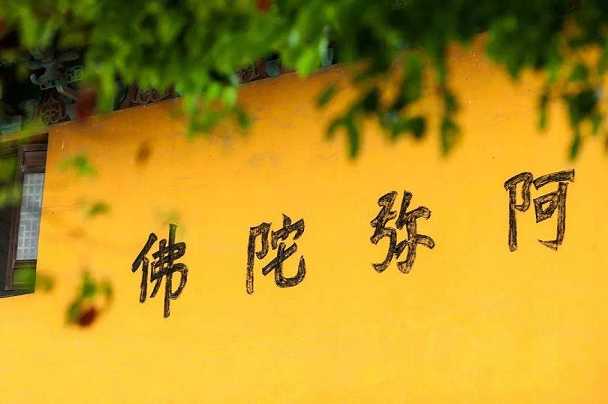 阿弥陀佛